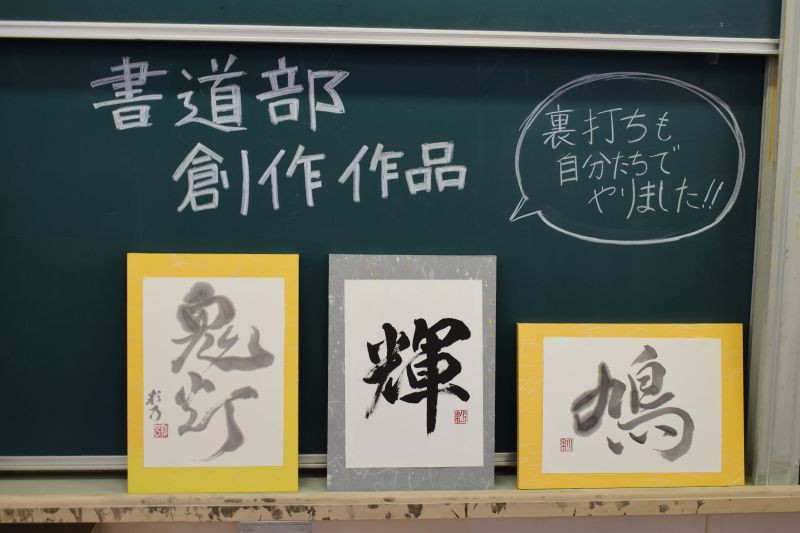 書道部
創作作品
裏打ちも
自分たちで
やりました!!
鬼灯
輝
鳩